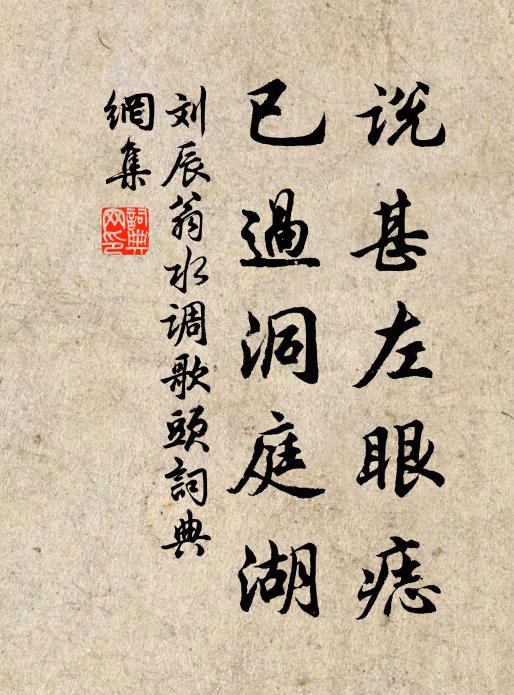 说甚左眼痣
已過洞庭湖
刘辰翁水调歌頭詞典
網集
詞典网印